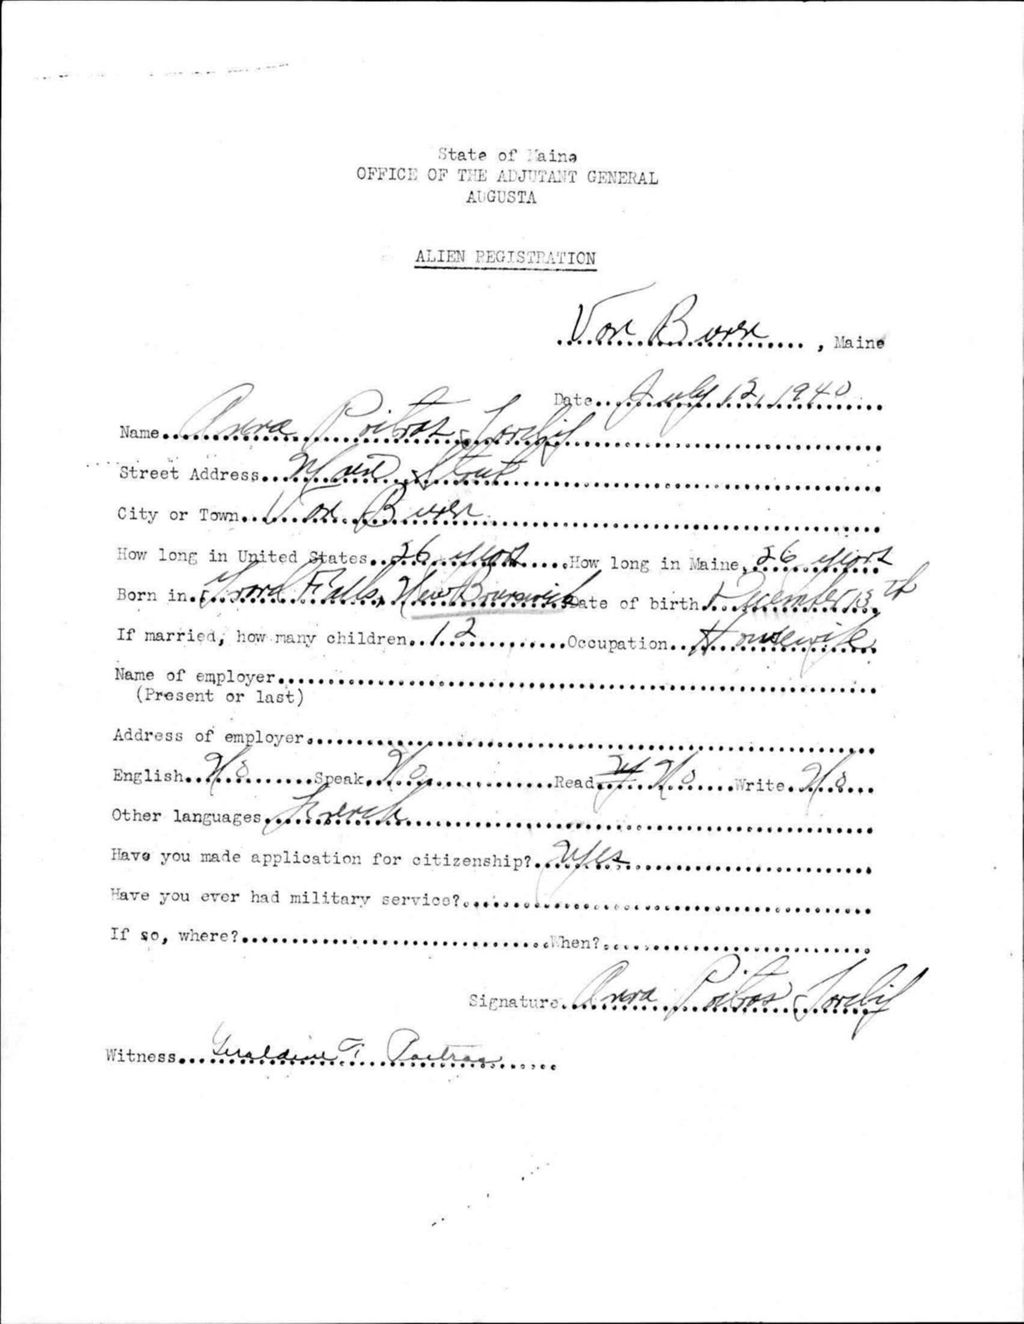 State of Maine
OFFICE OF THE ADJUTANT GENERAL
AUGUSTA
ALIEN REGISTRATION
Van Buren, Maine
Date July 12, 1940
Name Anna Poitras
Street Address Main Street
City or Town Van Buren
How long in United States 26 years How long in Maine 26 years
Born in Grand Falls, New Brunswick Date of birth December 13th
If married, how many children 12 Occupation Housewife
Name of employer
(Present or last)
Address of employer
English No Speak No Read No Write No
Other languages French
Have you made application for citizenship? Yes
Have you ever had military service?
If so, where? When?
Signature Anna Poitras
Witness Geraldine T. Poitras